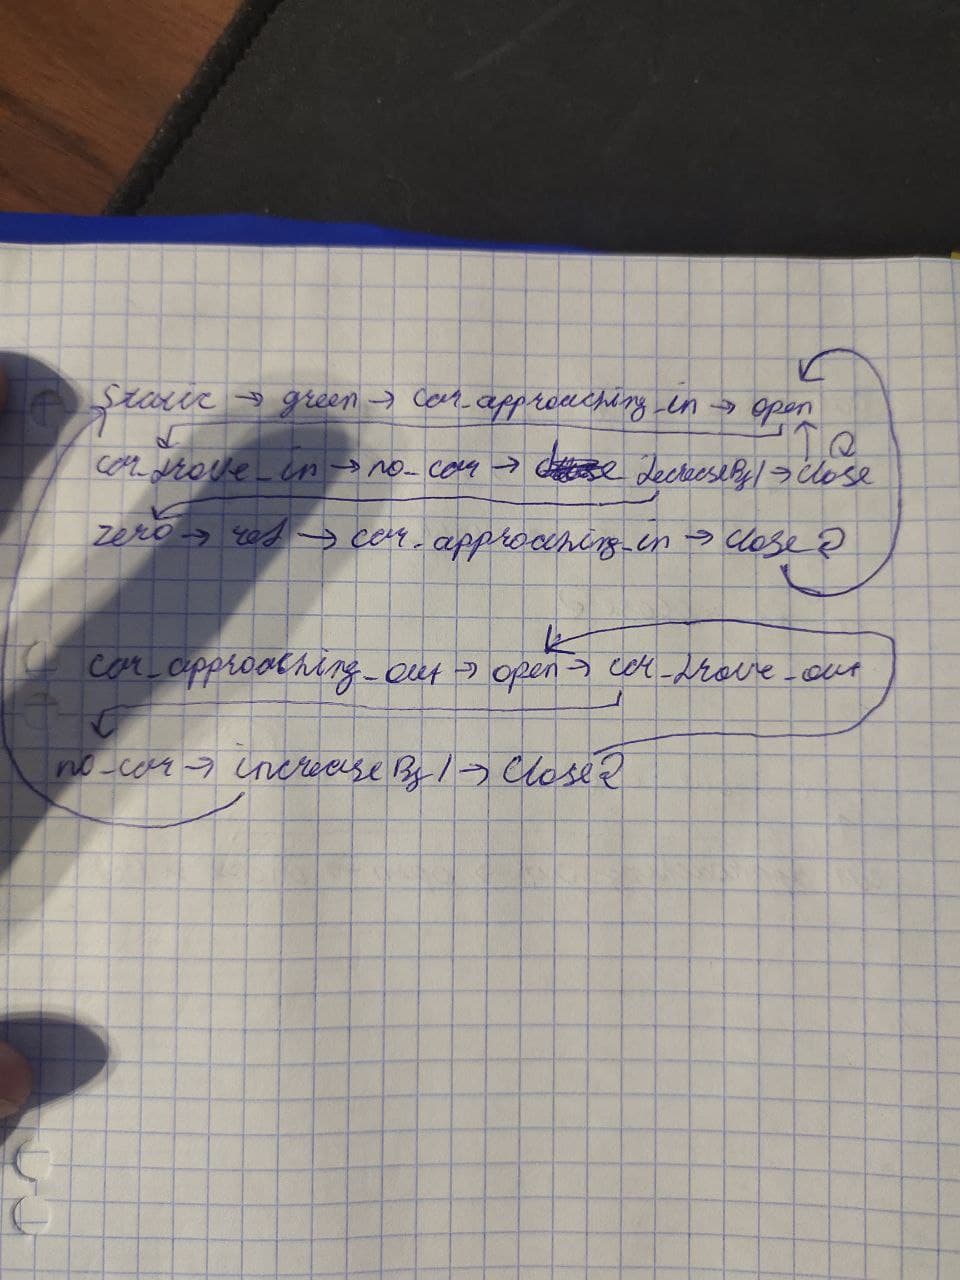 Static → green → car_approaching_in → open
car_drove_in → no_car → decreaseBy1 → close 2
zero → red → car_approaching_in → close 2
car_approaching_out → open → car_drove_out
no_car → increaseBy1 → Close 2